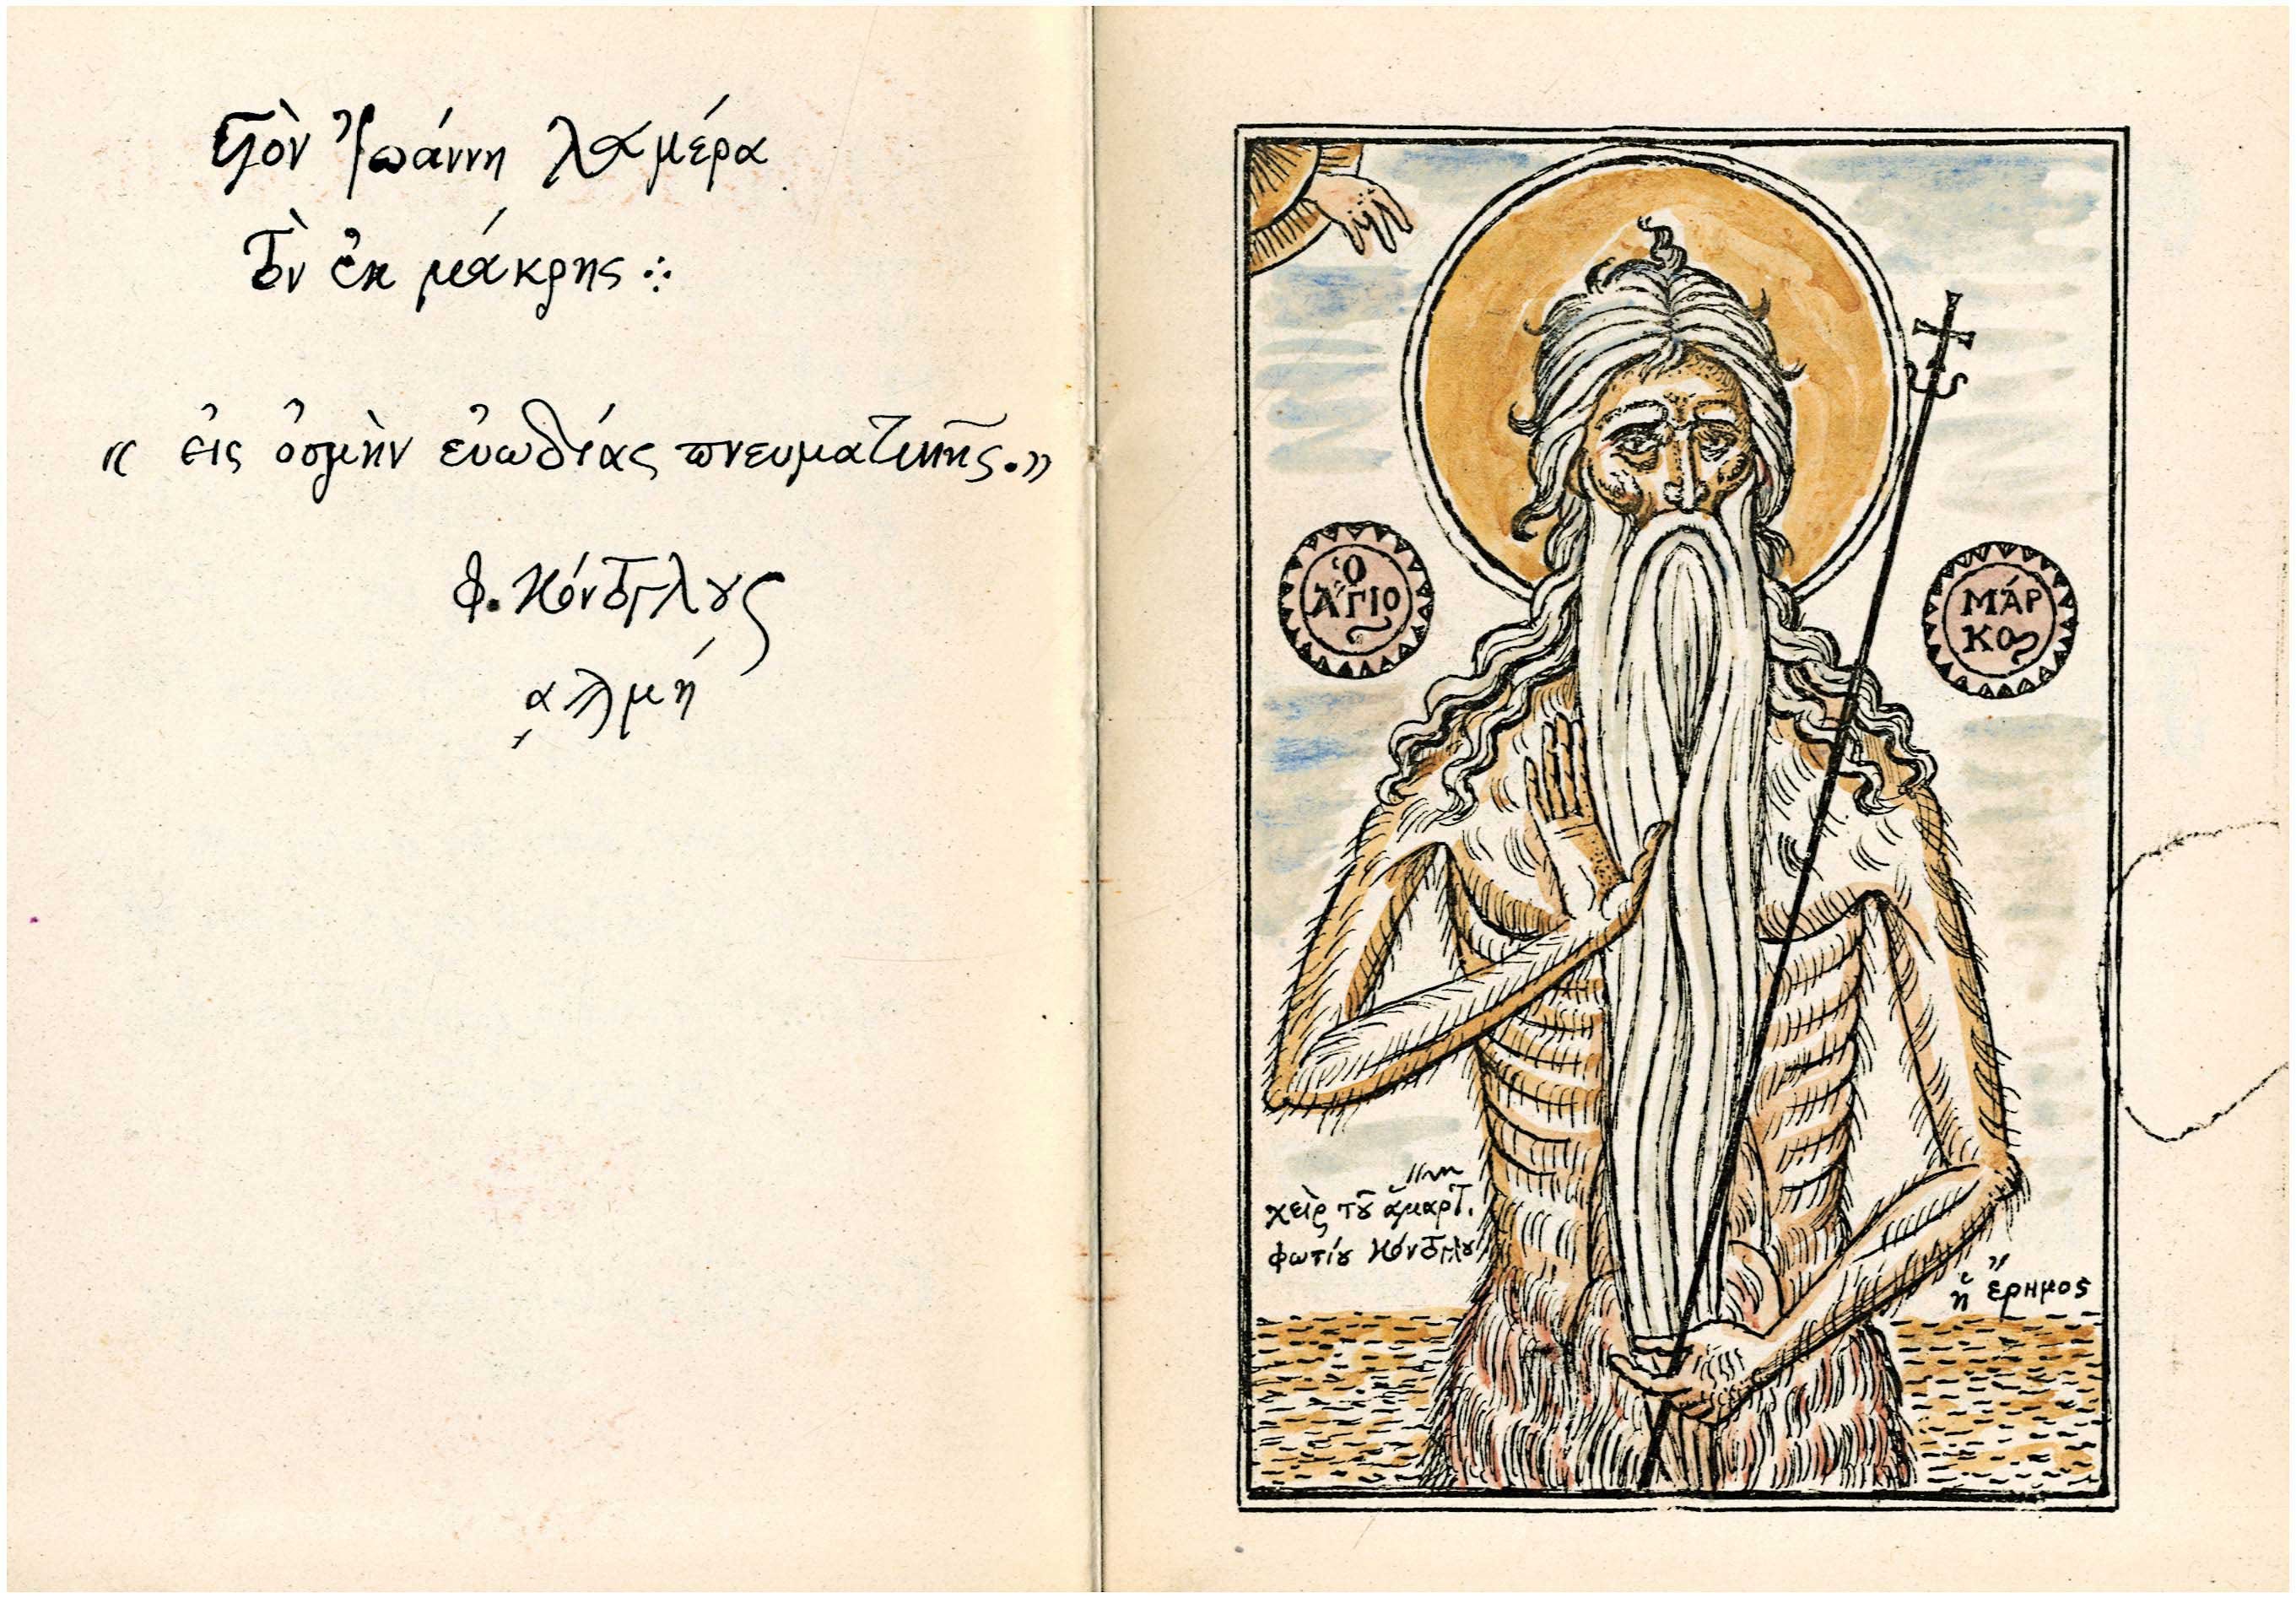 Τὸν Ἰωάννη Λαμέρα
τὸν ἐκ Μάκρης ⁘
« εἰς ὀσμὴν εὐωδίας πνευματικῆς.»
Φ. Κόντογλους
Ὁ ΑΓΙΟς
ΜΆΡ
ΚΟς
χεὶρ τȣ͂ ἁμαρτ.
Φωτίȣ Κόντογλȣ
ἡ ἔρημος